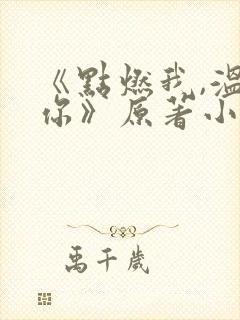 《點燃我,溫
你》原著小
禹千歲